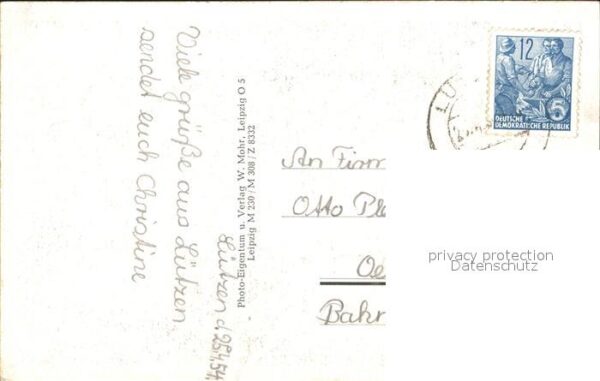 Viele grüße aus Lützen
sendet euch Christine
Lützen d. 25.4.54.
Photo-Eigentum u. Verlag W. Mohr, Leipzig O 5
Leipzig M 230 / M 308 / Z 8332
12
5
DEUTSCHE
DEMOKRATISCHE REPUBLIK
LÜ
An Firm
Otto
Oe
Bahr
privacy protection
Datenschutz